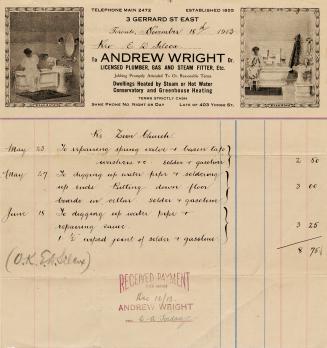 TELEPHONE MAIN 2472 ESTABLISHED 1855
3 GERRARD ST EAST
Toronto, November 18th 1903
Rev E D Silcox
To ANDREW WRIGHT Dr.
LICENSED PLUMBER, GAS AND STEAM FITTER, Etc.
Jobbing Promptly Attended To On Reasonable Terms
Dwellings Heated by Steam or Hot Water
Conservatory and Greenhouse Heating
TERMS STRICTLY CASH
SAME PHONE NO. NIGHT OR DAY LATE OF 403 YONGE ST.
Re Zion Church
May 23 To repairing spring valve & basin tap
washers &c solder & gasoline 2 50
May 27 To digging up water pipe & soldering
up ends Putting down floor
boards in cellar solder & gasoline 3 00
June 18 To digging up water pipe &
repairing same
1 ½ wiped joint of solder & gasoline 3 25
8 75
(O.K. E.D. Silcox)
RECEIVED PAYMENT
Dec 18/03
ANDREW WRIGHT